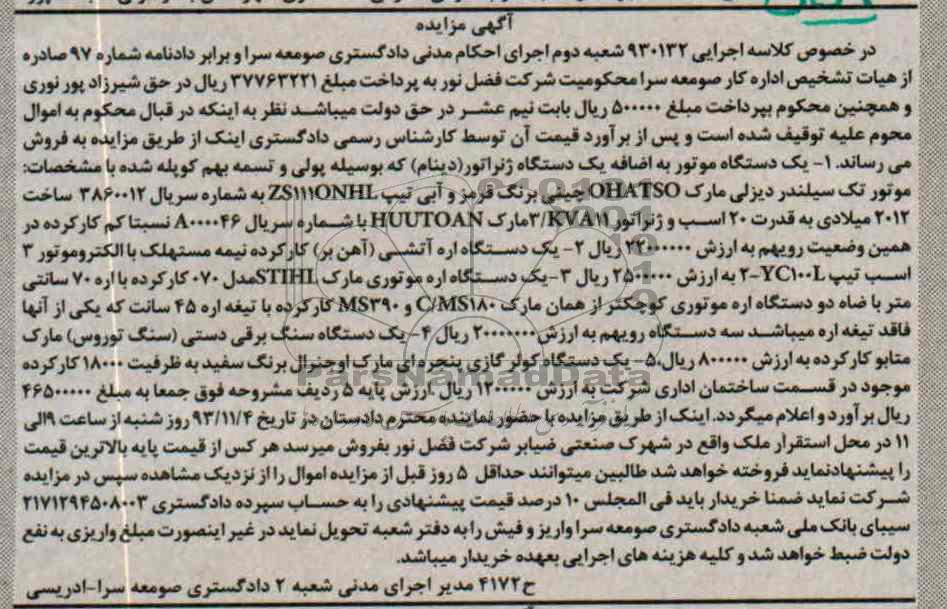 آگهی مزایده
در خصوص کلاسه اجرایی ۹۳۰۱۳۲ شعبه دوم اجرای احکام مدنی دادگستری صومعه سرا و برابر دادنامه شماره ۹۷ صادره
از هیات تشخیص اداره کار صومعه سرا محکومیت شرکت فضل نور به پرداخت مبلغ ۳۷۷۶۳۲۲۱ ریال در حق شیرزاد پور نوری
و همچنین محکوم بپرداخت مبلغ ۵۰۰۰۰۰ ریال بابت نیم عشر در حق دولت میباشد نظر به اینکه در قبال محکوم به اموال
محوم علیه توقیف شده است و پس از برآورد قیمت آن توسط کارشناس رسمی دادگستری اینک از طریق مزایده به فروش
می رساند. ۱- یک دستگاه موتور به اضافه یک دستگاه ژنراتور(دینام) که بوسیله پولی و تسمه بهم کوپله شده با مشخصات:
موتور تک سیلندر دیزلی مارک OHATSO چینی برنگ قرمز و آبی تیپ ZS۱۱۱ONHL به شماره سریال ۳۸۶۰۰۱۲ ساخت
۲۰۱۲ میلادی به قدرت ۲۰ اسب و ژنراتور ۳/KVA۱۱ مارک HUUTOAN با شماره سریال A۰۰۰۰۴۶ نسبتا کم کارکرده در
همین وضعیت رویهم به ارزش ۲۲۰۰۰۰۰۰ ریال ۲- یک دستگاه اره آتشی (آهن بر) کارکرده نیمه مستهلک با الکتروموتور ۳
اسب تیپ ۲-YC۱۰۰L به ارزش ۲۵۰۰۰۰۰ ریال ۳-یک دستگاه اره موتوری مارک STIHL مدل ۰۷۰ کارکرده با اره ۷۰ سانتی
متر با ضاه دو دستگاه اره موتوری کوچکتر از همان مارک C/MS۱۸۰ و MS۳۹۰ کارکرده با تیغه اره ۴۵ سانت که یکی از آنها
فاقد تیغه اره میباشد سه دستگاه رویهم به ارزش ۲۰۰۰۰۰۰۰ ریال ۴- یک دستگاه سنگ برقی دستی (سنگ توروس) مارک
متابو کارکرده به ارزش ۸۰۰۰۰۰ ریال ۵- یک دستگاه کولر گازی پنجره ای مارک اوجنرال برنگ سفید به ظرفیت ۱۸۰۰۰ کارکرده
موجود در قسمت ساختمان اداری شرکت به ارزش ۱۲۰۰۰۰۰ ریال .ارزش پایه ۵ ردیف مشروحه فوق جمعا به مبلغ ۴۶۵۰۰۰۰۰
ریال برآورد و اعلام میگردد. اینک از طریق مزایده با حضور نماینده محترم دادستان در تاریخ ۹۳/۱۱/۴ روز شنبه از ساعت ۹الی
۱۱ در محل استقرار ملک واقع در شهرک صنعتی ضیابر شرکت فضل نور بفروش میرسد هر کس از قیمت پایه بالاترین قیمت
را پیشنهادنماید فروخته خواهد شد طالبین میتوانند حداقل ۵ روز قبل از مزایده اموال را از نزدیک مشاهده سپس در مزایده
شرکت نماید ضمنا خریدار باید فی المجلس ۱۰ درصد قیمت پیشنهادی را به حساب سپرده دادگستری ۲۱۷۱۲۹۴۵۰۸۰۰۳
سیبای بانک ملی شعبه دادگستری صومعه سرا واریز و فیش را به دفتر شعبه تحویل نماید در غیر اینصورت مبلغ واریزی به نفع
دولت ضبط خواهد شد و کلیه هزینه های اجرایی بعهده خریدار میباشد.
ح۴۱۷۲ مدیر اجرای مدنی شعبه ۲ دادگستری صومعه سرا-ادریسی
ParsNamadData